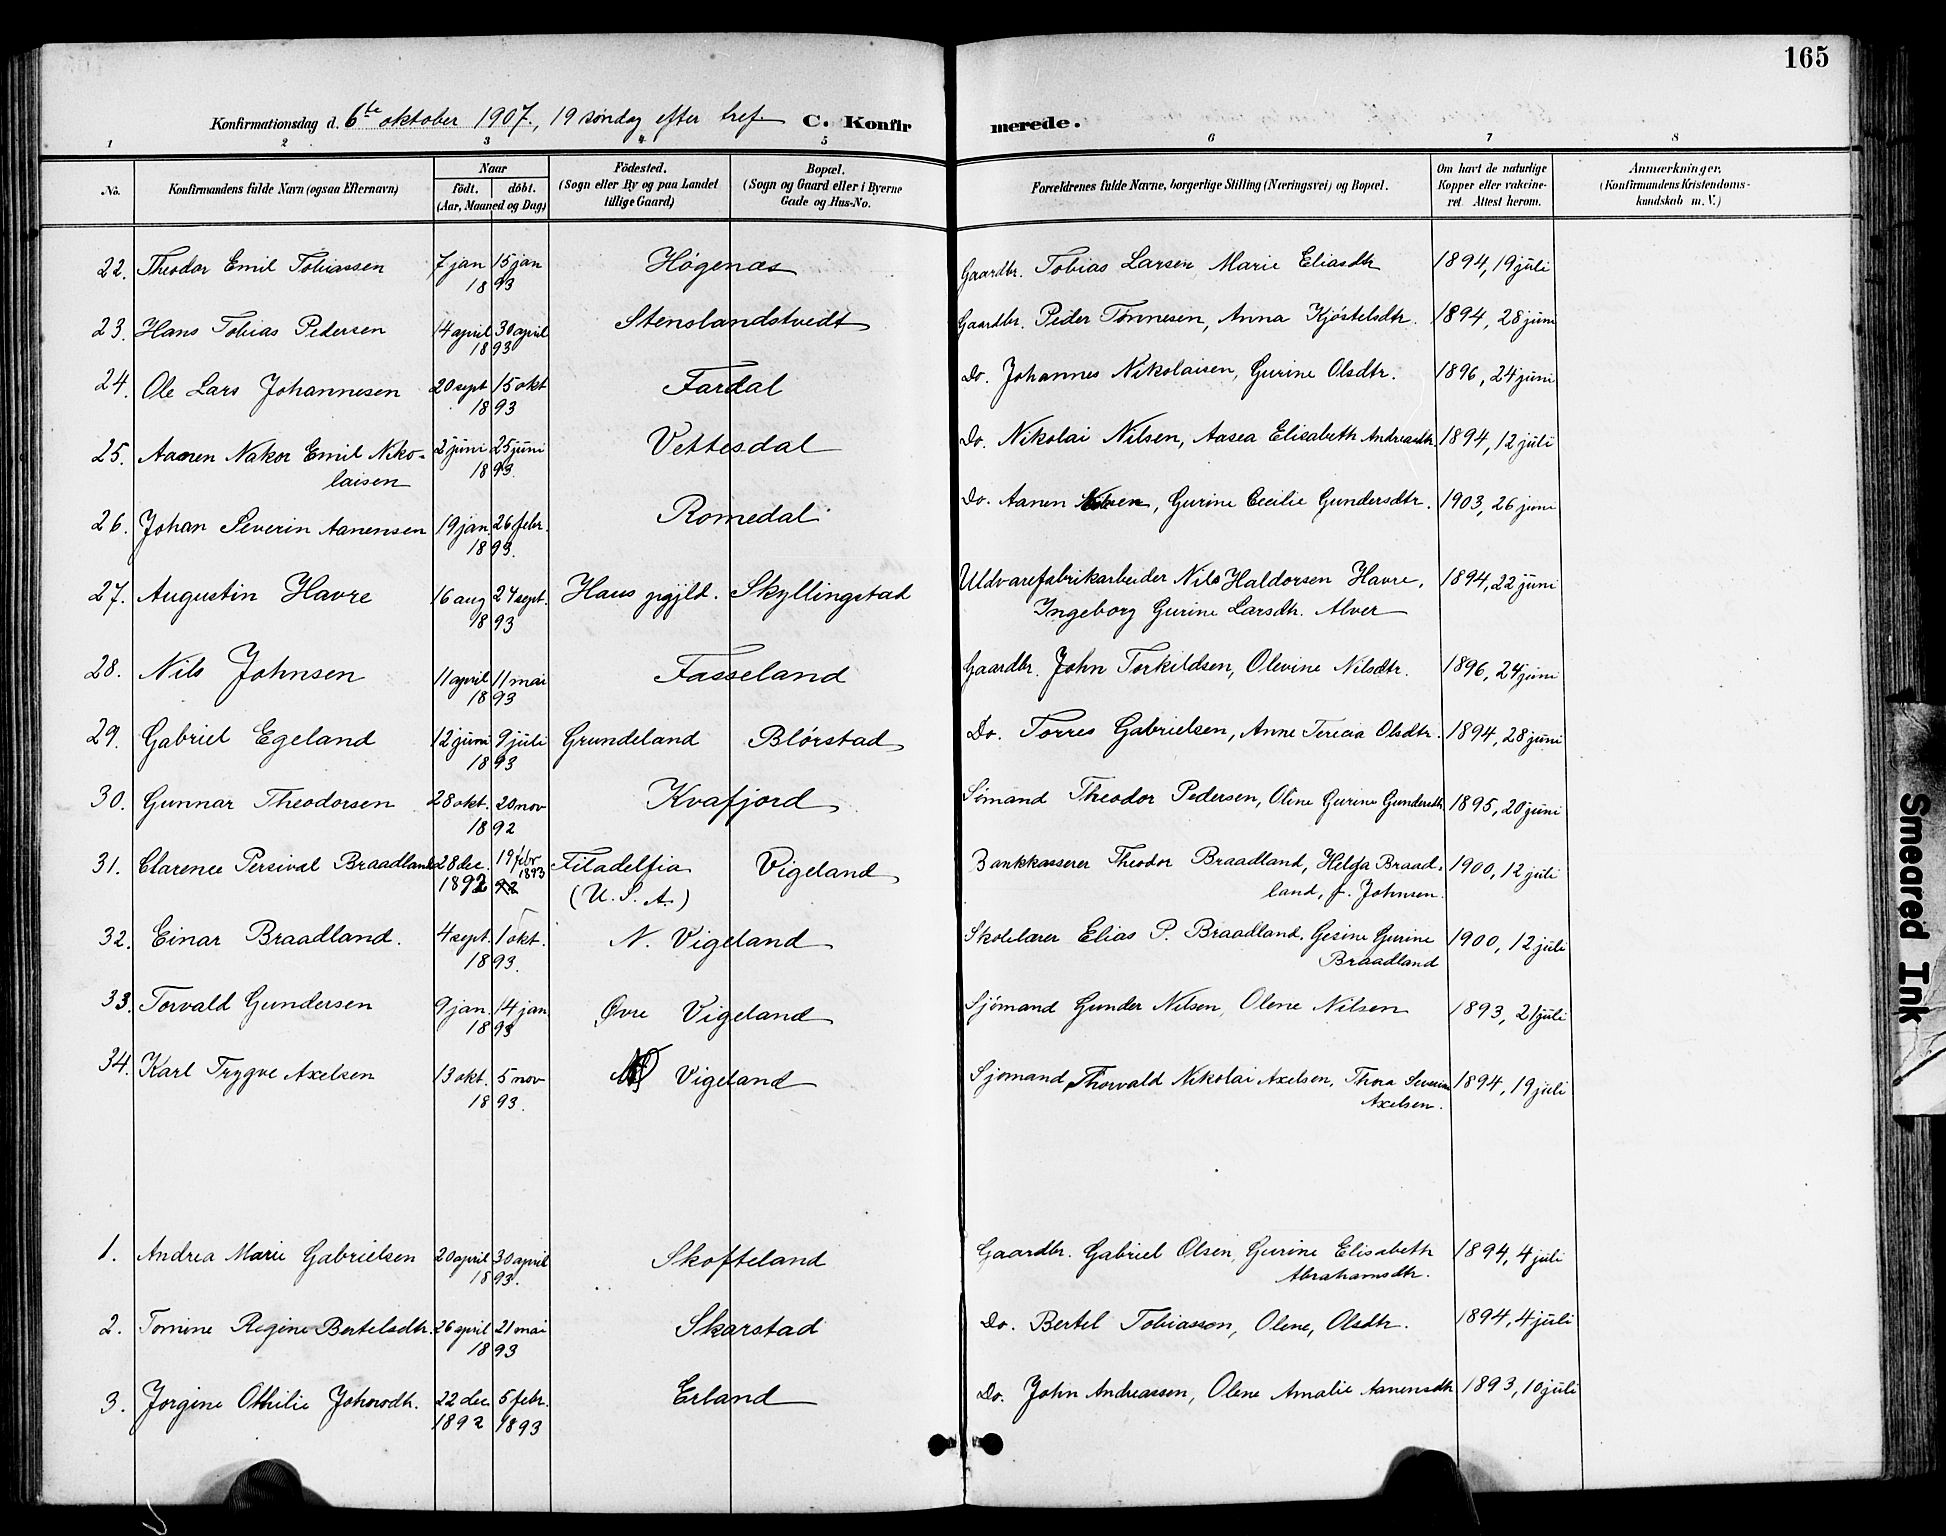 165
Konfirmationsdag d. 6te oktober 1907., 19 søndag efter tref. C. Konfirmerede.
1 2 3 4 5 6 7 8
No. Konfirmandens fulde Navn (ogsaa Efternavn) Naar født. døbt. (Aar, Maaned og Dag) Födested. (Sogn eller By og paa Landet tillige Gaard) Bopæl. (Sogn og Gaard eller i Byerne Gade og Hus-No. Forældrenes fulde Navne, borgerlige Stilling (Næringsvei) og Bopæl. Om havt de naturlige Kopper eller vakcineret. Attest herom. Anmærkninger, (Konfirmandens Kristendomskundskab m. V.)
22. Theodor Emil Tobiassen 7 jan 15 jan 1893 Høgenæs Gaardbr. Tobias Larsen Marie Eliasdtr 1894, 19 juli
23. Hans Tobias Pedersen 14 april 30 april 1893 Stenslandstvedt Gaardbr. Peder Tønnesen, Anna Kjøstelsdtr. 1894, 28 juni
24. Ole Lars Johannesen 20 sept 15 okt 1893 Fardal Do. Johannes Nikolaisen, Gurine Olsdtr. 1896, 24 juni
25. Aanen Nakor Emil Niko-
laisen 2 juni 25 juni 1893. Vettesdal Do. Nikolai Nilsen, Aasea Elisabeth Andreasdtr. 1894, 12 juli
26. Johan Severin Aanensen 19 jan. 26 febr. 1893. Romedal Do. Aanen , Gurine Cecilie Gundersdtr. 1903, 26 juni
27. Augustin Havre 16 aug 24 sept. 1893 Haus pgjld. Skyllingstad Uldvarefabrikarbeider Nils Haldorsen Havre, 1894, 22 juni
Ingeborg Gurine Larsdtr. Alver
28. Nils Johnsen 11 april 11 mai 1893 Fasseland Gaardbr. John Torkildsen, Olevine Nilsdtr. 1896, 24 juni
29. Gabriel Egeland 12 juni 9 juli 1893 Grundeland Blørstad Do. Torres Gabrielsen, Anne Terecia Olsdtr. 1894, 28 juni
30. Gunnar Theodorsen 28 okt. 20 nov 1892 Kvafjord Sømand Theodor Pedersen, Oline Gurine Gundersdtr 1895, 20 juni
31. Clarence Persival Braadland 28 dec. 1892 19 febr 1893 92 Filadelfia (U. S. A.) Vigeland Bankkasserer Theodor Braadland, Helga Braad- 1900, 12 juli
land, f. Johnsen.
32. Einar Braadland. 4 sept. 1 okt. 1893. N. Vigeland Skolelærer Elias P. Braadland, Gesine Gurine 1900, 12 juli
Braadland
33. Torvald Gundersen 9 jan. 14 jan 1893 Øvre Vigeland Sjömand Gunder Nilsen, Olene Nilsen 1893, 21 juli
34. Karl Trygve Axelsen 13 okt. 5 nov 1893. Vigeland Sjomand Thorvald Nikolai Axelsen, Thora Severine 1894, 19 juli
Axelsen.
1. Andrea Marie Gabrielsen 20 april 30 april 1893. Skofteland Gaardbr. Gabriel Olsen, Gurine Elisabeth 1894, 4 juli
Abrahamsdtr.
2. Tomine Regine Bertelsdtr. 26 april 21 mai 1893 Skarstad Do. Bertel Tobiasson, Olene, Olsdtr. 1894, 4 juli
3. Jorgine Othilie Johnsdtr. 22 dec 1892 5 febr. 1893 Erland Do. John Andreassen, Olene Amalie Aanensdtr 1893, 10 juli
Smeared Ink